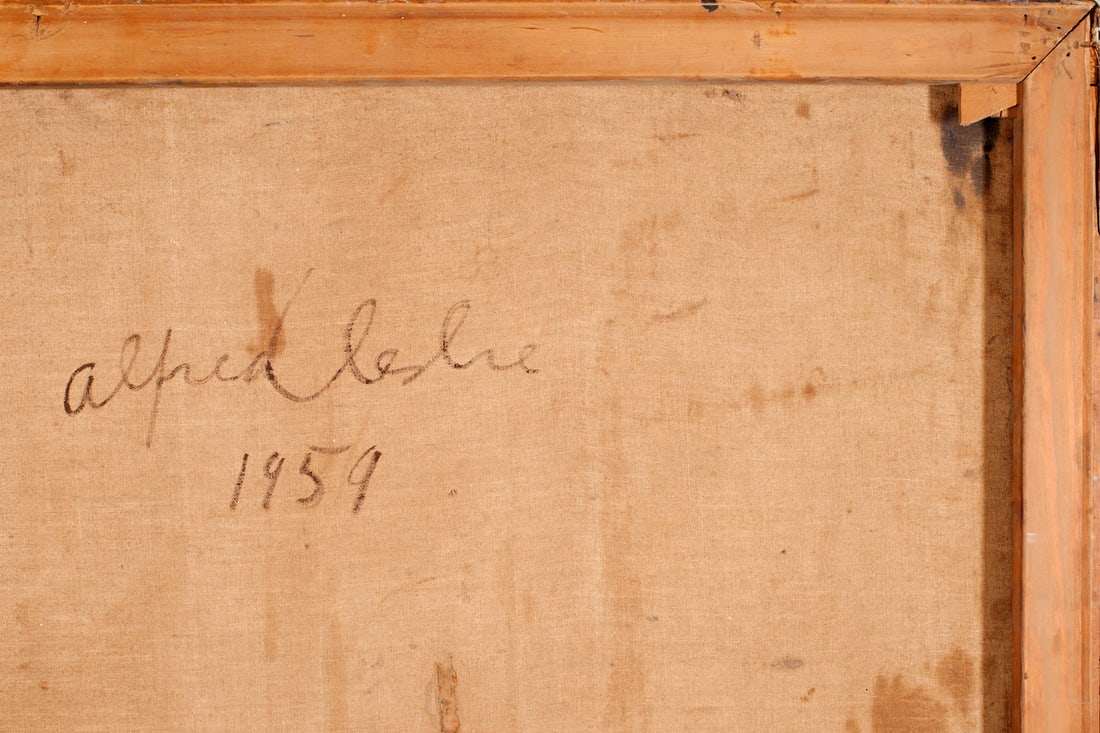 alfred leslie
1959